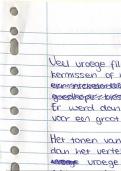 Veel vroege fil
kermissen of
Er werd dan
voor een groot
Het tonen van
dan het verte
vroege